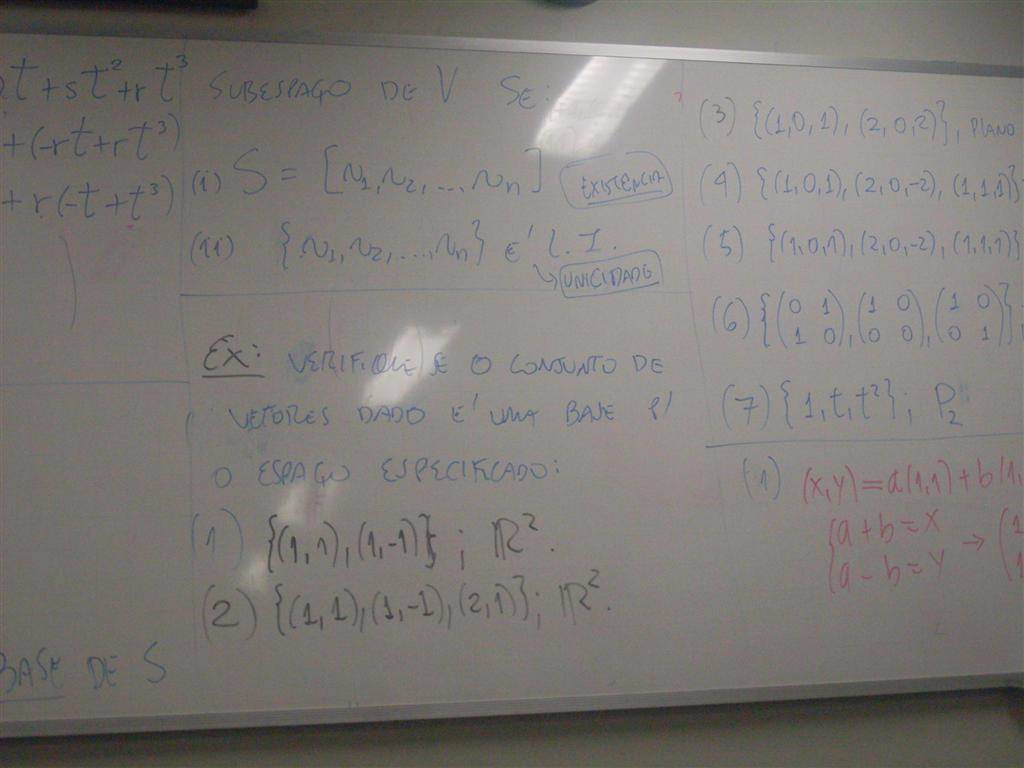 t+st²+rt³
+(-rt+rt³)
+ r(-t+t³)
BASE DE S
SUBESPAÇO DE V SE:
(i) S = [v₁,v₂,...vₙ] EXISTÊNCIA
(ii) {v₁,v₂,...,vₙ} E' L.I.
↳ UNICIDADE
Ex: VERIFIQUE SE O CONJUNTO DE
VETORES DADO E' UMA BASE P/
O ESPAÇO ESPECIFICADO:
(1) {(1,1),(1,-1)}; ℝ².
(2) {(1,1),(1,-1),(2,1)}; ℝ².
(3) {(1,0,1),(2,0,2)}, PLANO
(4) {(1,0,1),(2,0,-2),(1,1,1)}
(5) {(1,0,1),(2,0,-2),(1,1,1)}
(6) {(0 1),(1 0),(1 0)};
1 0 0 0 0 1
(7) {1,t,t²}; P₂
(1) (x,y)=a(1,1)+b(1,
{a+b=x
{a-b=y → (1
1